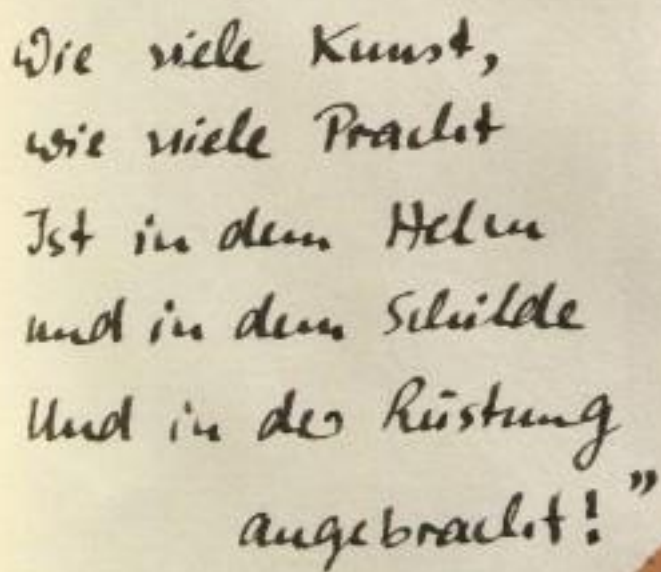 Wie viele Kunst,
wie viele Pracht
Ist in dem Helm
und in dem Schilde
Und in der Rüstung
angebracht!”